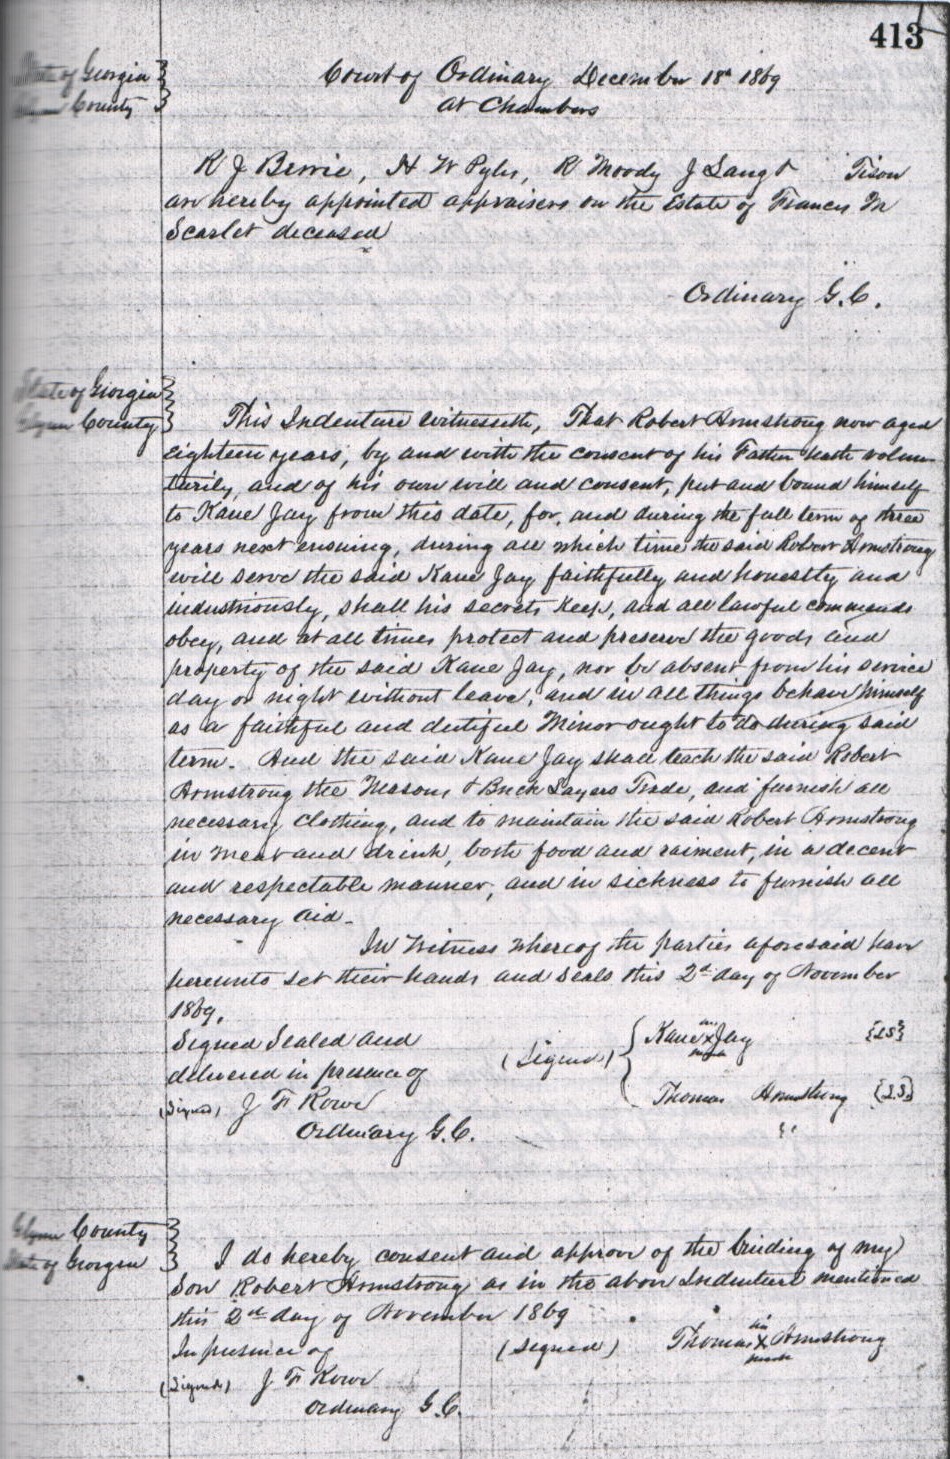 413
State of Georgia
Glynn County
Court of Ordinary December 18th 1869
at Chambers
R J Berrie, H W Pyles, R Moody J Lang & Tison
are hereby appointed appraisers on the Estate of Francis M
Scarlet deceased
Ordinary G.C.
State of Georgia
Glynn County
This Indenture Witnesseth, That Robert Armstrong now aged
eighteen years, by and with the consent of his Father hath volun-
tarily, and of his own will and consent, put and bound himself
to Kane Jay from this date, for, and during the full term of three
years next ensuing, during all which time the said Robert Armstrong
will serve the said Kane Jay faithfully and honestly and
industriously, shall his secrets keep, and all lawful commands
obey, and at all times protect and preserve the goods and
property of the said Kane Jay, nor be absent from his service
day or night without leave, and in all things behave himself
as a faithful and dutiful Minor ought to do during said
term. And the said Kane Jay shall teach the said Robert
Armstrong the Masons & Brick Layers Trade, and furnish all
necessary clothing, and to maintain the said Robert Armstrong
in meat and drink, both food and raiment, in a decent
and respectable manner, and in sickness to furnish all
necessary aid.
In Witness whereof the parties aforesaid have
hereunto set their hands and seals this 2d day of November
1869.
Signed Sealed and
delivered in presence of
(Signed) J F Rowe
Ordinary G.C.
(Signed)
Kane his X mark Jay {LS}
Thomas Armstrong {L.S.}
Glynn County
State of Georgia
I do hereby consent and approve of the binding of my
Son Robert Armstrong as in the above Indenture mentioned
this 2d day of November 1869
In presence of (Signed) Thomas his X mark Armstrong
(Signed) J F Rowe
Ordinary G.C.